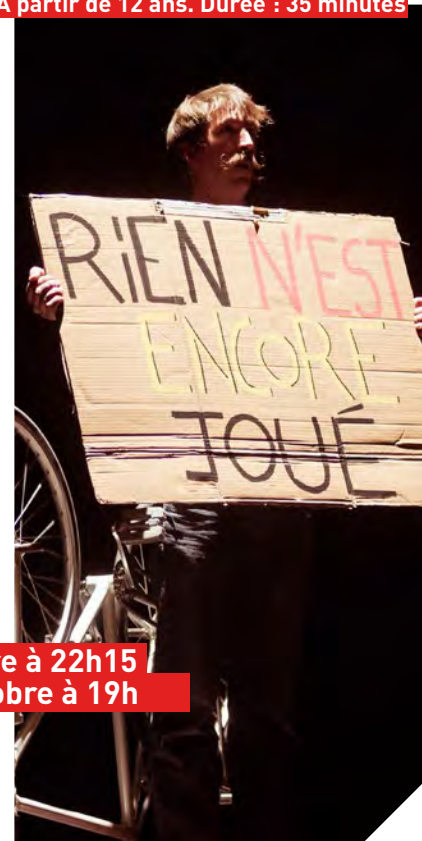 A partir de 12 ans. Durée : 35 minutes
RiEN N'EST
ENCORE
JOUÉ
à 22h15
à 19h